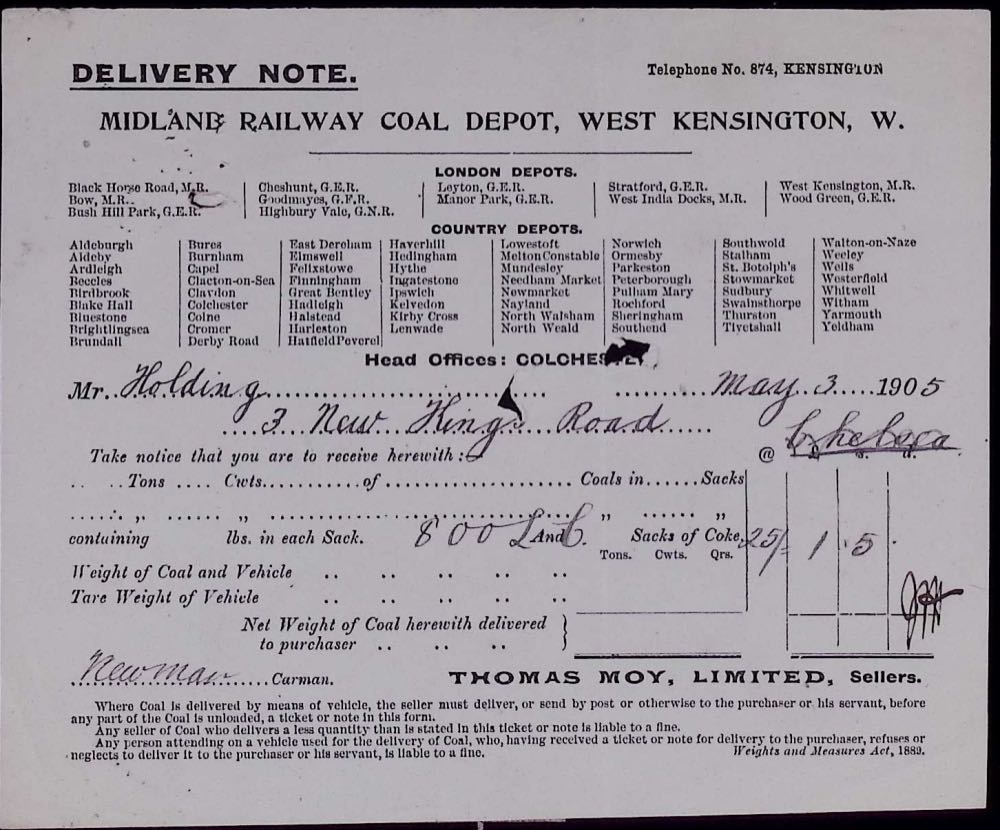 DELIVERY NOTE.
Telephone No. 874, KENSINGTON
MIDLAND RAILWAY COAL DEPOT, WEST KENSINGTON, W.
LONDON DEPOTS.
Black Horse Road, M.R. Cheshunt, G.E.R. Leyton, G.E.R. Stratford, G.E.R. West Kensington, M.R.
Bow, M.R. Goodmayes, G.E.R. Manor Park, G.E.R. West India Docks, M.R. Wood Green, G.E.R.
Bush Hill Park, G.E.R. Highbury Vale, G.N.R.
COUNTRY DEPOTS.
Aldeburgh Bures East Dereham Haverhill Lowestoft Norwich Southwold Walton-on-Naze
Aldeby Burnham Elmswell Hedingham Melton Constable Ormesby Stalham Weeley
Ardleigh Capel Felixstowe Hythe Mundesley Parkeston St. Botolph's Wells
Beccles Clacton-on-Sea Finningham Ingatestone Needham Market Peterborough Stowmarket Westerfield
Birdbrook Claydon Great Bentley Ipswich Newmarket Pulham Mary Sudbury Whitwell
Blake Hall Colchester Hadleigh Kelvedon Nayland Rochford Swainsthorpe Witham
Bluestone Colne Halstead Kirby Cross North Walsham Sheringham Thurston Yarmouth
Brightlingsea Cromer Harleston Lenwade North Weald Southend Tivetshall Yeldham
Brundall Derby Road Hatfield Peverel
Head Offices: COLCHESTER.
Mr. Holding May 3 1905
3 New Kings Road
Chelsea
Take notice that you are to receive herewith: @ £ s. d.
Tons .... Cwts. of Coals in ...... Sacks
" " " "
containing lbs. in each Sack. 800 L And C. Sacks of Coke. 25/- 1 5
Tons. Cwts. Qrs.
Weight of Coal and Vehicle
Tare Weight of Vehicle
Net Weight of Coal herewith delivered
to purchaser
Newman Carman. THOMAS MOY, LIMITED, Sellers.
Where Coal is delivered by means of vehicle, the seller must deliver, or send by post or otherwise to the purchaser or his servant, before
any part of the Coal is unloaded, a ticket or note in this form.
Any seller of Coal who delivers a less quantity than is stated in this ticket or note is liable to a fine.
Any person attending on a vehicle used for the delivery of Coal, who, having received a ticket or note for delivery to the purchaser, refuses or
neglects to deliver it to the purchaser or his servant, is liable to a fine. Weights and Measures Act, 1889.